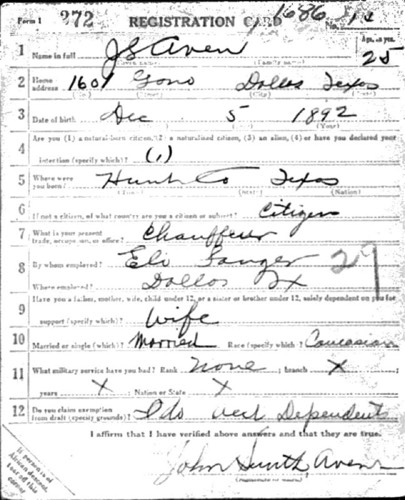 Form 1 272 REGISTRATION CARD 1686 No.
1 Name in full J S Aven Age, in yrs. 25
2 Home address 1601 Dallas Texas
3 Date of birth Dec 5 1892
4 Are you (1) a natural-born citizen, (2) a naturalized citizen, (3) an alien, (4) or have you declared your
intention (specify which)? (1)
5 Where were you born? Hunt Co Texas
(Nation)
6 If not a citizen, of what country are you a citizen or subject? Citizen
7 What is your present trade, occupation, or office? Chauffeur
8 By whom employed? Eli Sanger 29
Where employed? Dallas Tx
9 Have you a father, mother, wife, child under 12, or a sister or brother under 12, solely dependent on you for
support (specify which)? Wife
10 Married or single (which)? Married Race (specify which)? Caucasian
11 What military service have you had? Rank None ; branch X ;
years X ; Nation or State X
12 Do you claim exemption from draft (specify grounds)? I do Dependents
I affirm that I have verified above answers and that they are true.
John Smith Aven